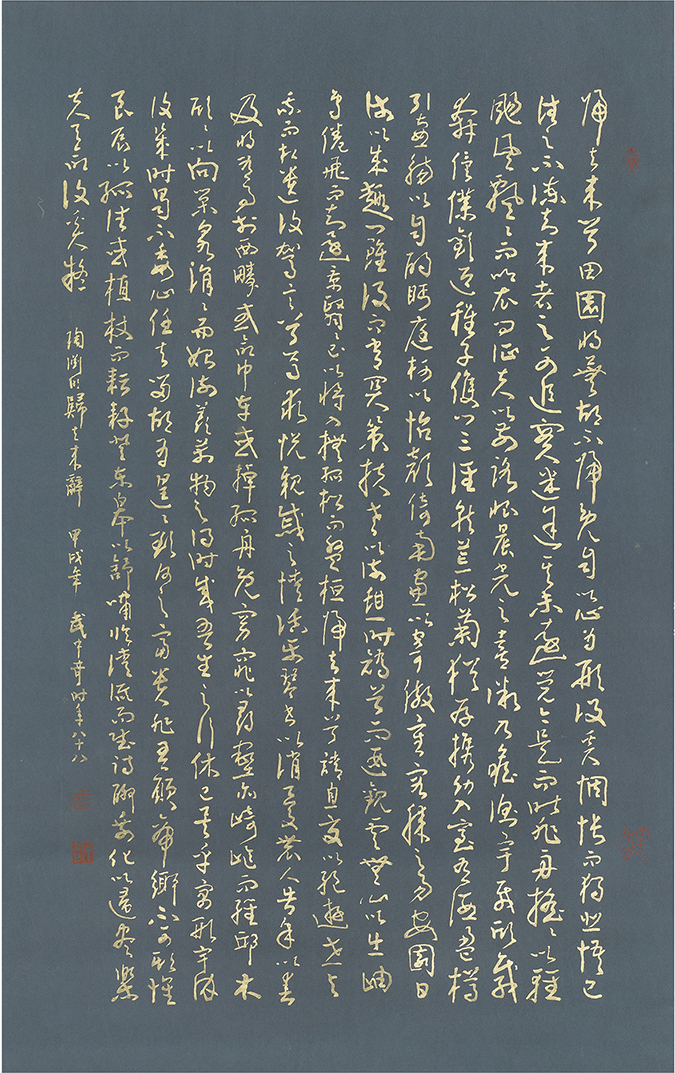 歸去來兮田園將蕪胡不歸既自以心為形役奚惆悵而獨悲悟已
往之不諫知來者之可追實迷途其未遠覺今是而昨非舟搖搖以輕
颺風飄飄而吹衣問征夫以前路恨晨光之熹微乃瞻衡宇載欣載
奔僮僕歡迎稚子候門三徑就荒松菊猶存攜幼入室有酒盈樽
引壺觴以自酌眄庭柯以怡顏倚南窗以寄傲審容膝之易安園日
涉以成趣門雖設而常關策扶老以流憩時矯首而遐觀雲無心以出岫
鳥倦飛而知還景翳翳以將入撫孤松而盤桓歸去來兮請息交以絕遊世與
我而相違復駕言兮焉求悅親戚之情話樂琴書以消憂農人告余以春
及將有事於西疇或命巾車或棹孤舟既窈窕以尋壑亦崎嶇而經邱木
欣欣以向榮泉涓涓而始流羨萬物之得時感吾生之行休已矣乎寓形宇內
復幾時曷不委心任去留胡為遑遑欲何之富貴非吾願帝鄉不可期懷
良辰以孤往或植杖而耘耔登東皋以舒嘯臨清流而賦詩聊乘化以歸盡樂
夫天命復奚疑 陶淵明歸去來辭 甲戌年 武中奇時年八十八